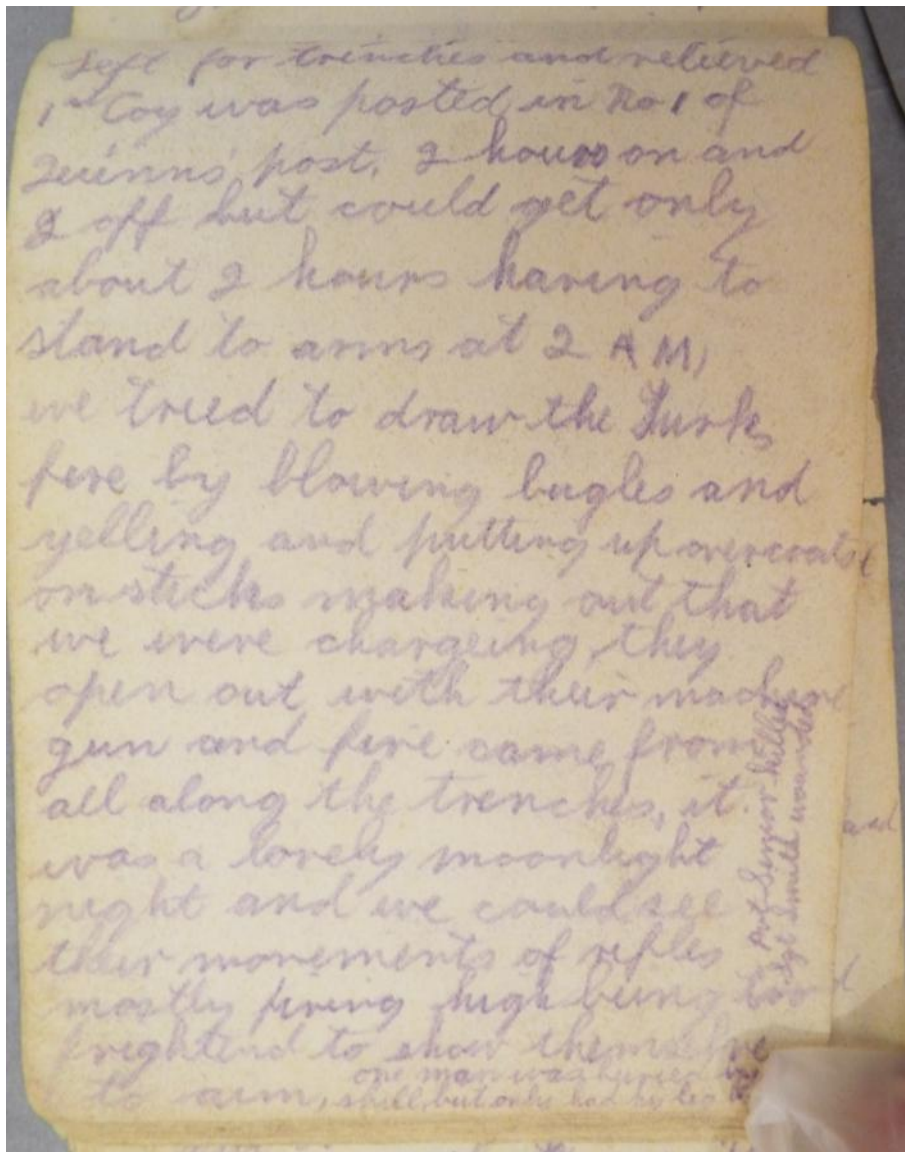 Left for trenches and relieved
1st Coy was posted in No 1 of
Quinns' post, 2 hours on and
2 off but could get only
about 2 hours having to
stand to arms at 2 AM,
we tried to draw the Turks
fire by blowing bugles and
yelling and putting up overcoats
on sticks making out that
we were chargeing, they
open out with their machine
gun and fire came from
all along the trenches, it
was a lovely moonlight
night and we could see
their movements of rifles
mostly firing high being too
frightend to show themselve
to aim, one man was buried
shell, but only had his leg
Pvt Senior killed
Sgt Smith wounded